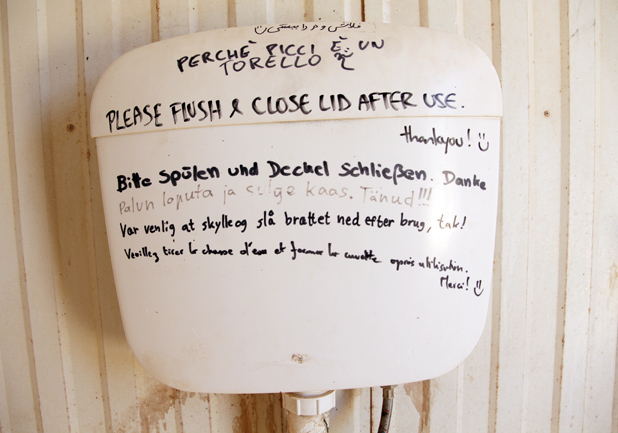 PERCHÈ RICCI È UN
TORELLO
PLEASE FLUSH & CLOSE LID AFTER USE.
thankyou! :)
Bitte Spülen und Deckel Schließen. Danke
Palun loputa ja sulge kaas. Tänud!!!
Vær venlig at skylle og slå brættet ned efter brug, tak!
Veuillez tirer la chasse d'eau et fermer la cuvette après utilisation.
Merci! :)